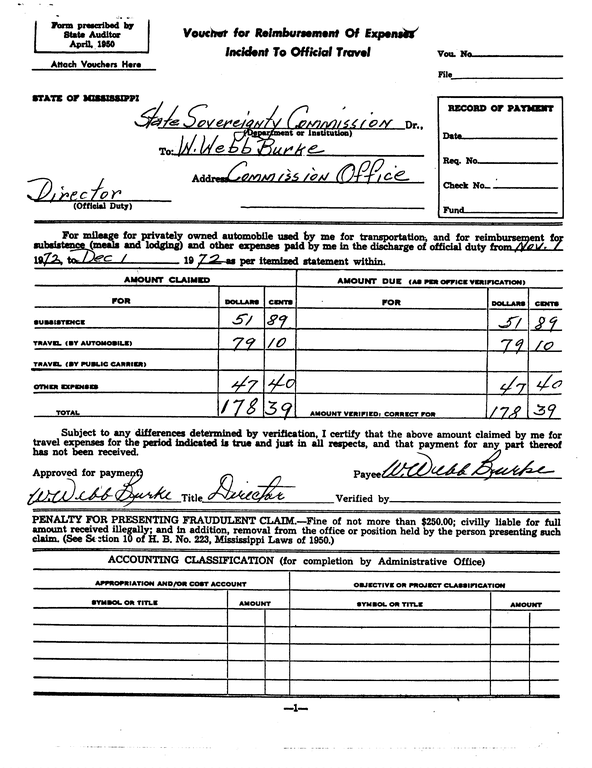 Form prescribed by
State Auditor
April, 1950
Attach Vouchers Here
Voucher for Reimbursement Of Expenses
Incident To Official Travel
Vou. No.
File
STATE OF MISSISSIPPI
State Sovereignty Commission Dr.,
(Department or Institution)
To: W. Webb Burke
Address Commission Office
Director
(Official Duty)
RECORD OF PAYMENT
Date
Req. No.
Check No.
Fund
For mileage for privately owned automobile used by me for transportation, and for reimbursement for
subsistence (meals and lodging) and other expenses paid by me in the discharge of official duty from Nov. 1
1972, to Dec 1 1972 as per itemized statement within.
AMOUNT CLAIMED AMOUNT DUE (AS PER OFFICE VERIFICATION)
FOR DOLLARS CENTS FOR DOLLARS CENTS
SUBSISTENCE 51 89 51 89
TRAVEL (BY AUTOMOBILE) 79 10 79 10
TRAVEL (BY PUBLIC CARRIER)
OTHER EXPENSES 47 40 47 40
TOTAL 178 39 AMOUNT VERIFIED: CORRECT FOR 178 39
Subject to any differences determined by verification, I certify that the above amount claimed by me for
travel expenses for the period indicated is true and just in all respects, and that payment for any part thereof
has not been received.
Approved for payment: Payee W. Webb Burke
W. Webb Burke Title Director Verified by
PENALTY FOR PRESENTING FRAUDULENT CLAIM.—Fine of not more than $250.00; civilly liable for full
amount received illegally; and in addition, removal from the office or position held by the person presenting such
claim. (See Section 10 of H. B. No. 223, Mississippi Laws of 1950.)
ACCOUNTING CLASSIFICATION (for completion by Administrative Office)
APPROPRIATION AND/OR COST ACCOUNT OBJECTIVE OR PROJECT CLASSIFICATION
SYMBOL OR TITLE AMOUNT SYMBOL OR TITLE AMOUNT
—1—